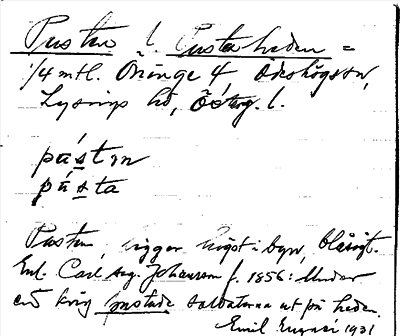 Pusten l. Pustaheden =
1/4 mtl. Öninge 4, Ödeshögs sn,
Lysings hd, Östg. l.
pústn
pústa
Pusten ligger högst i byn, blåsigt.
Enl. Carl Aug. Johansson f. 1856: Under
ett krig pustade soldaterna ut på heden.
Emil 1931